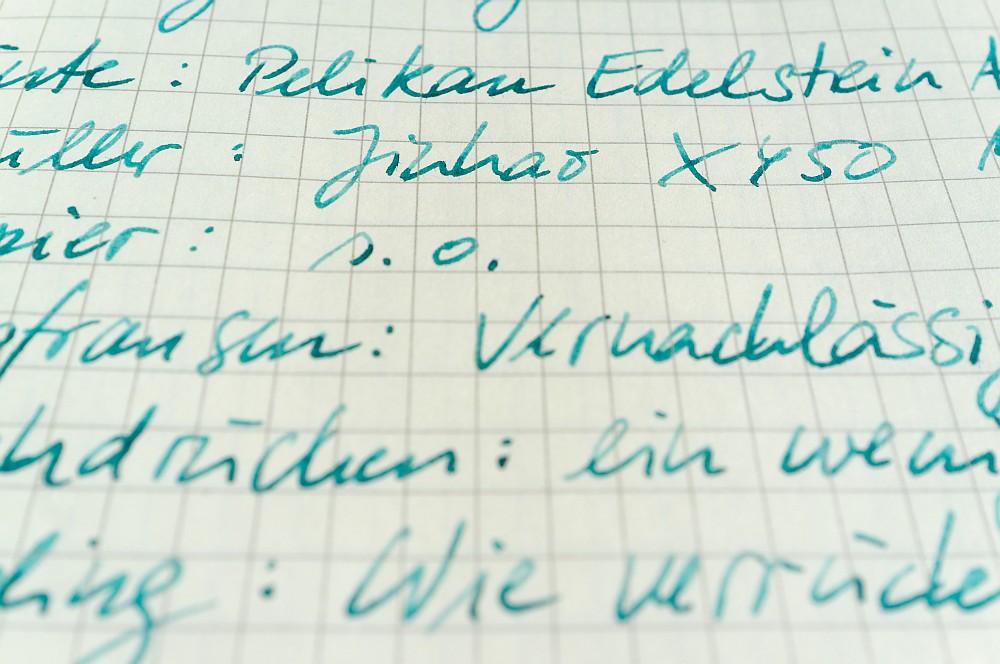 inte : Pelikan Edelstein A
üller : Jinhao X450
pier : s. o.
sfransen: Vernachlässi
hdrücken : ein weni
ding : Wie verrück